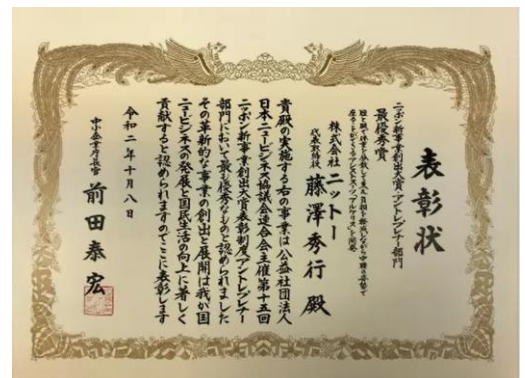 表彰状
ニッポン新事業創出大賞・アントレプレナー部門
最優秀賞
座ることができるアシストスーツ「アルケリス」を開発
株式会社ニットー
代表取締役 藤澤秀行 殿
貴殿の実施する右の事業は公益社団法人
日本ニュービジネス協議会連合会主催第十五回
ニッポン新事業創出大賞表彰制度アントレプレナー
部門において最優秀なものと認められました
その革新的な事業の創出と展開は我が国
ニュービジネスの発展と国民生活の向上に著しく
貢献すると認められますのでここに表彰します
令和二年十月八日
中小企業庁長官 前田泰宏